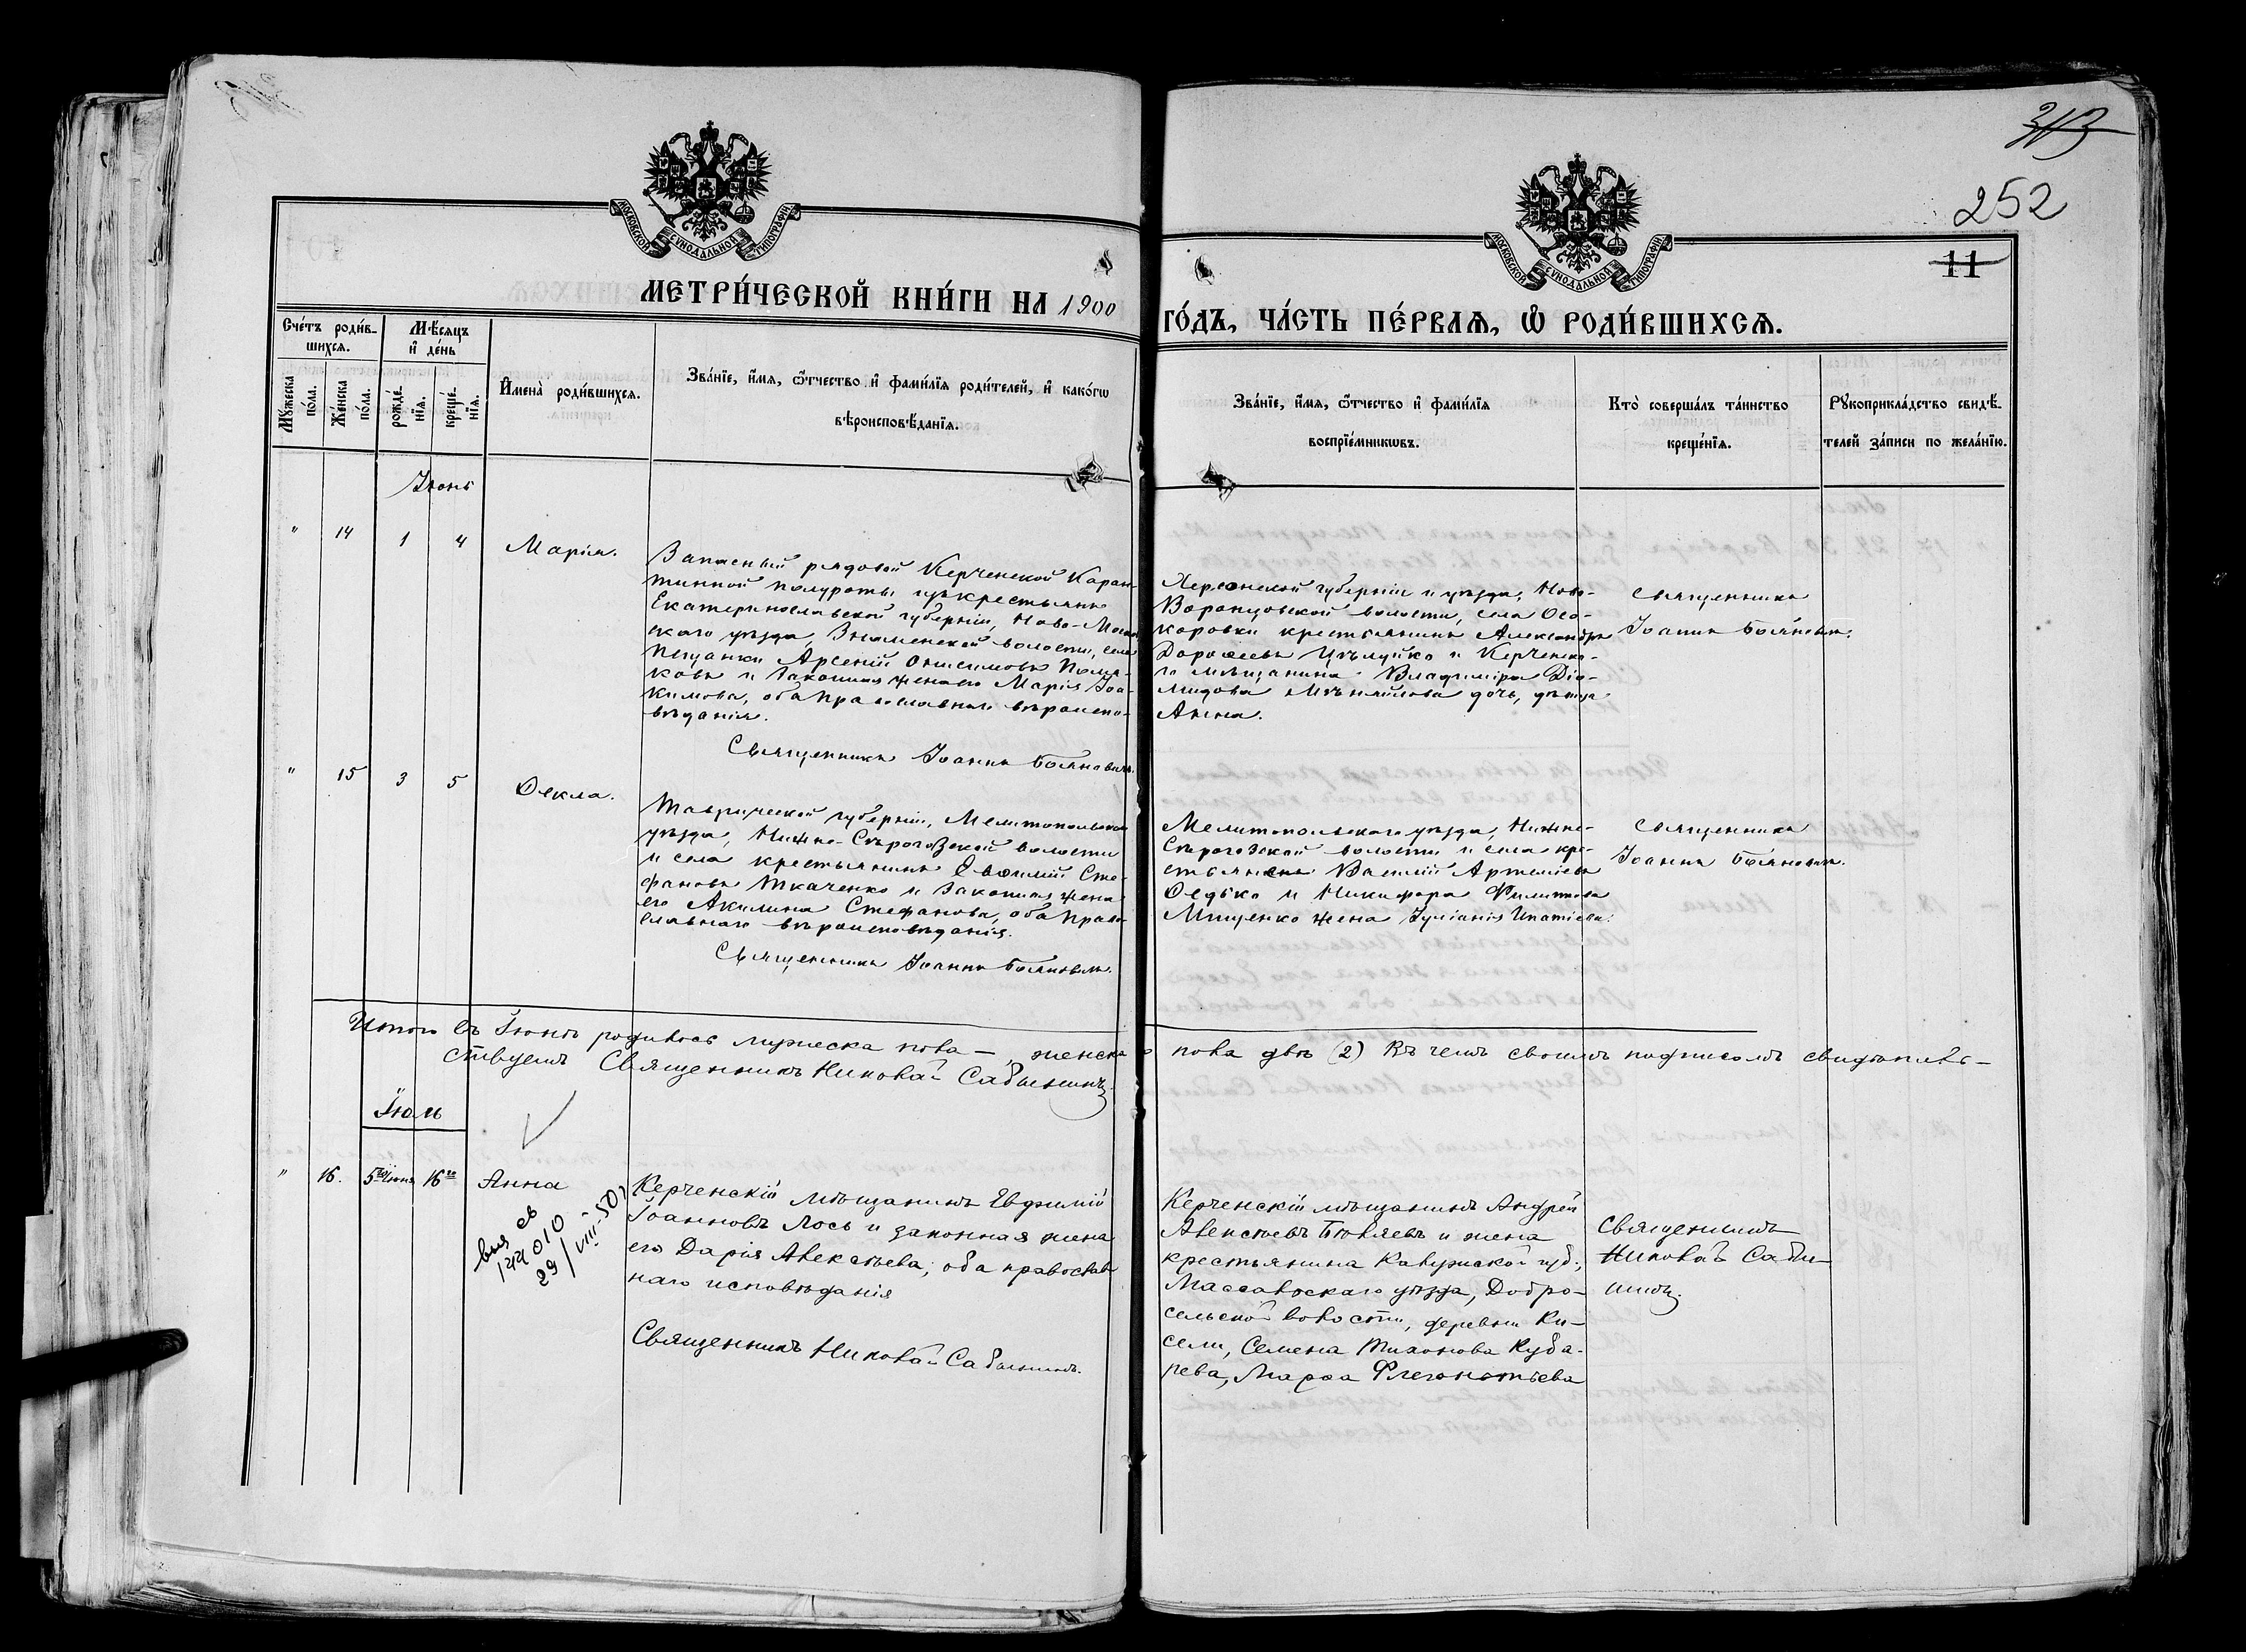 313
252
11
МОСКОВСКОЙ СѴНОДАЛЬНОЙ ТИПОГРАФІИ
МОСКОВСКОЙ СѴНОДАЛЬНОЙ ТИПОГРАФІИ
МЕТРИ́ЧЕСКОЙ КНИ́ГИ НА 1900 ГО́ДЪ, ЧА́СТЬ ПЕ́РВАЯ, Ѡ РОДИ́ВШИХСЯ.
Сче́тъ роди́в-
шихся.
Мѣ́сяцъ
и҆ де́нь
Мꙋ́жеска
по́ла.
Же́нска
по́ла.
рожде́-
нїя.
креще́-
нїя.
И҆мена̀ роди́вшихся.
Зва́нїе, и҆́мя, ѻ҆́тчество и҆ фами́лїя роди́телей, и҆ како́гѡ
вѣроисповѣ́данїя.
Зва́нїе, и҆́мя, ѻ҆́тчество и҆ фами́лїя
воспрїе́мникѡвъ.
Кто̀ соверша́лъ та́инство
креще́нїя.
Рꙋкоприкла́дство свидѣ́-
телей за́писи по жела́нїю.
Іюнь
" 14 1 4 Марія.
Запасный рядовой Керченской Каран-
тинной полуроты изъ крестьянъ
Екатеринославской губерніи, Ново-Моск
скаго уѣзда, Знаменской волости, села
Песчанки Арсеній Онисимовъ Поля-
ковъ и законная жена его Марія Іоа-
кимова, оба православнаго вѣроиспо-
вѣданія.
Священникъ Іоаннъ Бояновичъ.
Херсонской губерніи и уѣзда, Ново-
Воронцовской волости, села Осо-
коровки крестьянинъ Александръ
Дороѳеевъ Цѣлуйко и Керченска-
го мѣщанина Владиміра Діо-
мидова дочь, дѣвица
Анна.
Священникъ
Іоаннъ Бояновичъ.
" 15 3 5 Ѳекла.
Таврической губерніи, Мелитопольскаго
уѣзда, Нижне-Сѣрогозской волости
и села крестьянинъ Евѳимій Сте-
фановъ Ткаченко и законная жена
его Акилина Стефанова, оба право-
славнаго вѣроисповѣданія.
Священникъ Іоаннъ Бояновичъ.
Мелитопольскаго уѣзда, Нижне-
Сѣрогозской волости и села кре-
стьянинъ Василій Артеміевъ
Ѳедько и Никифора Филиппова
Мищенко жена Іуліанія Ипатіева.
Священникъ
Іоаннъ Бояновичъ.
Итого въ Іюнѣ родилось мужеска пола —, женска пола двѣ (2) Въ чемъ своимъ подписомъ свидѣтель-
ствуемъ Священникъ Николай Сабынинъ.
Іюль
" 16. 5го Іюня 16го Анна
выд св
144010
29/VIII-50г
Керченскій мѣщанинъ Евфимій
Іоанновъ Лось и законная жена
его Дарія Алексѣева, оба православ
наго исповѣданія
Священникъ Николай Сабынинъ.
Керченскій мѣщанинъ Андрей
Алексѣевъ и жена
крестьянина Калужской губ.,
Масальскаго уѣзда, Добро-
сельской волости, деревни Ки-
сели, Семена Тихонова Куба-
рева, Марѳа Флегонтьева
Священникъ
Николай Сабы-
нинъ.